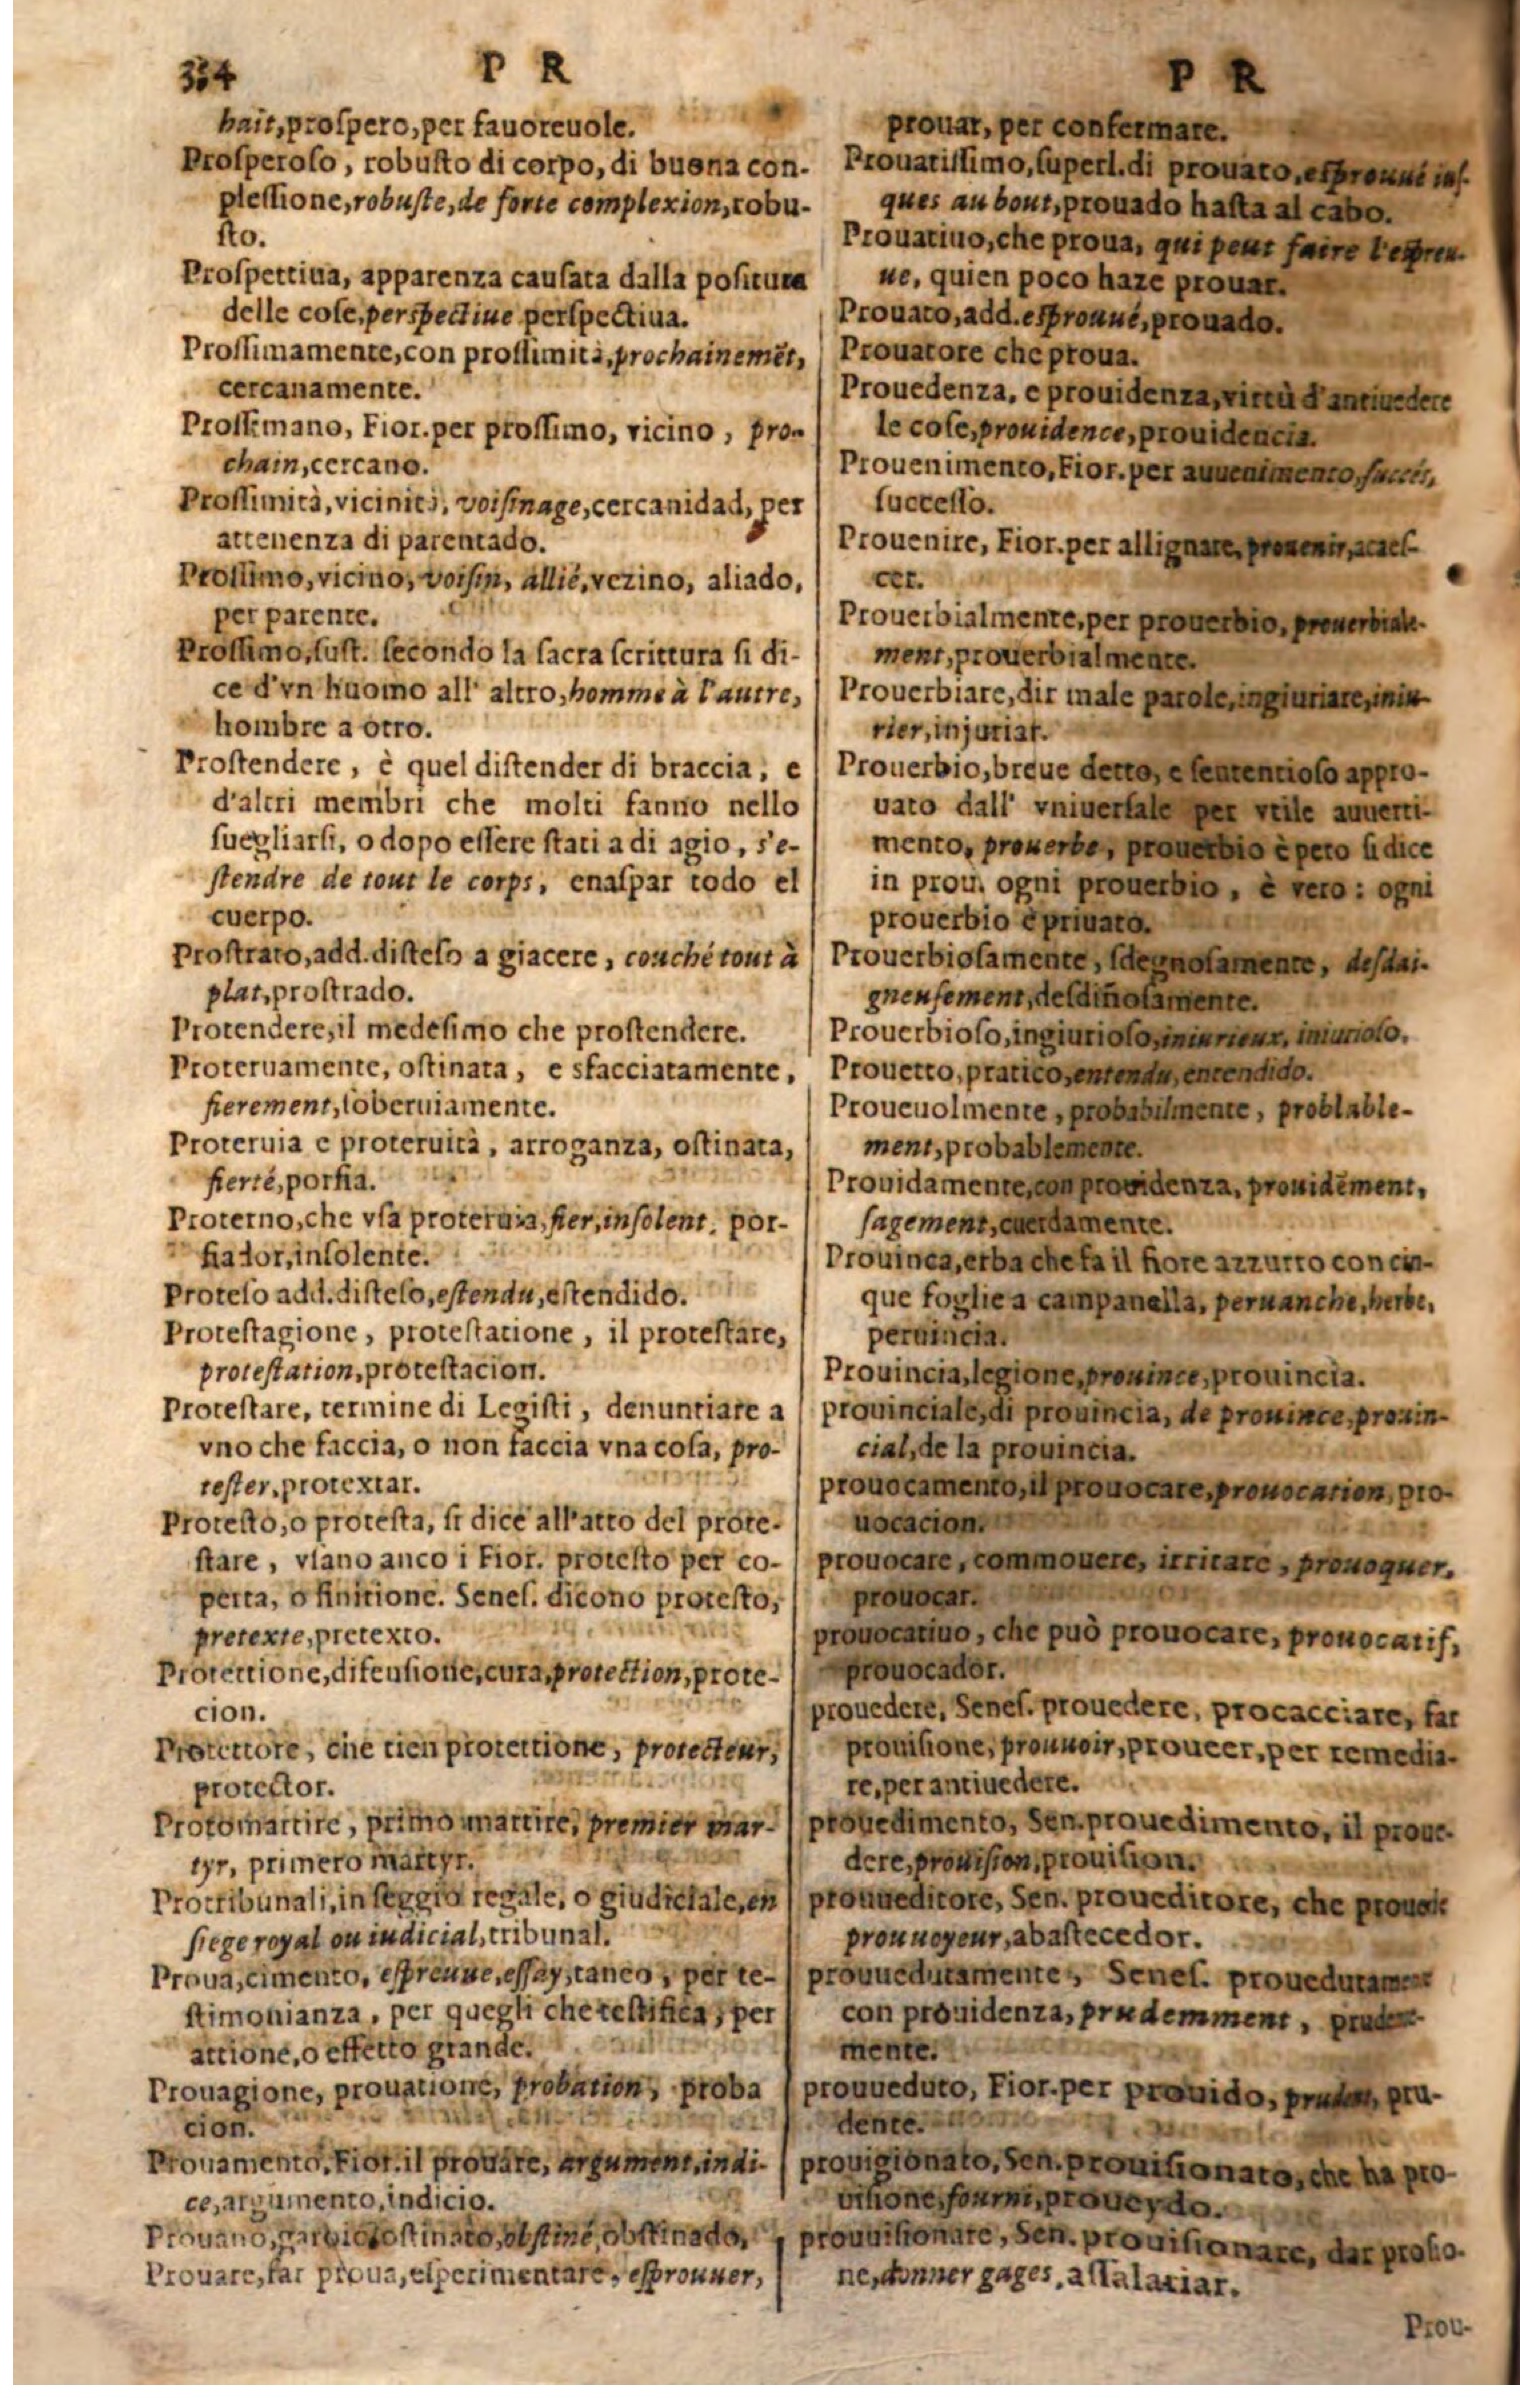 334
P R
hait,proſpero,per fauoreuole.
Proſperoſo, robuſto di corpo, di buona con-
pleſſione,robuſte,de forte complexion,robu-
ſto.
Proſpettiua, apparenza cauſata dalla poſitura
delle coſe,perſpectiue perſpectiua.
Proſſimamente,con proſſimità,prochainemẽt,
cercanamente.
Proſſimano, Fior.per proſſimo, vicino, pro-
chain,cercano.
Proſſimità,vicinità, voiſinage,cercanidad, per
attenenza di parentado.
Proſſimo,vicino, voiſin, allié,vezino, aliado,
per parente.
Proſſimo,ſuſt. ſecondo la ſacra ſcrittura ſi di-
ce d'vn huomo all' altro,homme à l'autre,
hombre a otro.
Proſtendere, è quel diſtender di braccia, e
d'altri membri che molti fanno nello
ſuegliarſi, o dopo eſſere ſtati a di agio, s'e-
ſtendre de tout le corps, enaſpar todo el
cuerpo.
Proſtrato,add.diſteſo a giacere, couché tout à
plat,proſtrado.
Protendere,il medeſimo che proſtendere.
Proteruamente, oſtinata, e sfacciatamente,
fierement,ſoberuiamente.
Proteruia e proteruità, arroganza, oſtinata,
fierté,porfia.
Proterno,che vſa proteruia,fier,inſolent, por-
fiador,inſolente.
Proteſo add.diſteſo,eſtendu,eſtendido.
Proteſtagione, proteſtatione, il proteſtare,
proteſtation,proteſtacion.
Proteſtare, termine di Legiſti, denuntiare a
vno che faccia, o non faccia vna coſa, pro-
teſter,protextar.
Proteſto,o proteſta, ſi dice all'atto del prote-
ſtare, vſano anco i Fior. proteſto per co-
perta, o finitione. Seneſ. dicono proteſto,
pretexte,pretexto.
Protettione,difenſione,cura,protection,prote-
cion.
Protettore, che tien protettione, protecteur,
protector.
Protomartire, primo martire, premier mar-
tyr, primero martyr.
Protribunali,in ſeggio regale, o giudiciale,en
ſiege royal ou iudicial,tribunal.
Proua,cimento, eſpreuue,eſſay,tanco, per te-
ſtimonianza, per quegli che teſtifica, per
attione,o effetto grande.
Prouagione, prouatione, probation, proba
cion.
Prouamento,Fior.il prouare, argument,indi-
ce,argumento,indicio.
Prouano,garbicſoſtinato,obſtiné,obſtinado,
Prouare,far proua,eſperimentare, eſprouuer,
P R
prouar, per confermare.
Prouatiſſimo,ſuperl.di prouato,eſprouué iuſ-
ques au bout,prouado haſta al cabo.
Prouatiuo,che proua, qui peut faire l'eſpreu-
ue, quien poco haze prouar.
Prouato,add.eſprouué,prouado.
Prouatore che proua.
Prouedenza, e prouidenza,virtù d'antiuedere
le coſe,prouidence,prouidencia.
Prouenimento,Fior.per auuenimento,ſuccés,
ſucceſſo.
Prouenire, Fior.per allignare,prouenir,acaeſ-
cer.
Prouerbialmente,per prouerbio, prouerbiale-
ment,prouerbialmente.
Prouerbiare,dir male parole,ingiuriare,iniu-
rier,injuriar.
Prouerbio,breue detto, e ſententioſo appro-
uato dall' vniuerſale per vtile auuerti-
mento, prouerbe, prouerbio è pero ſi dice
in prou. ogni prouerbio, è vero: ogni
prouerbio è priuato.
Prouerbioſamente, ſdegnoſamente, deſdai-
gneuſement,deſdiñoſamente.
Prouerbioſo,ingiurioſo,iniurieux, iniurioſo.
Prouetto,pratico,entendu,entendido.
Proueuolmente, probabilmente, problable-
ment,probablemente.
Prouidamente,con prouidenza, prouidẽment,
ſagement,cuerdamente.
Prouinca,erba che fa il fiore azzurro con cin-
que foglie a campanella, peruanche,herbe,
peruincia.
Prouincia,legione,prouince,prouincia.
prouinciale,di prouincia, de prouince,prouin-
cial,de la prouincia.
prouocamento,il prouocare,prouocation,pro-
uocacion.
prouocare, commouere, irritare, prouoquer,
prouocar.
prouocatiuo, che può prouocare, prouocatif,
prouocador.
prouedere, Seneſ. prouedere, procacciare, far
prouiſione, prouuoir,proueer,per remedia-
re,per antiuedere.
prouedimento, Sen.prouedimento, il proue-
dere,prouiſion,prouiſion.
prouueditore, Sen. proueditore, che prouede
prouuoyeur,abaſtecedor.
prouuedutamente, Seneſ. prouedutamente
con prouidenza, prudemment, prudente-
mente.
prouueduto, Fior.per prouido, prudent, pru-
dente.
prouigionato,Sen.prouiſionato,che ha pro-
uiſione,fourni,proueydo.
prouuiſionare, Sen. prouiſionare, dar prouiſio-
ne,donner gages,aſſalariar.
Prou-